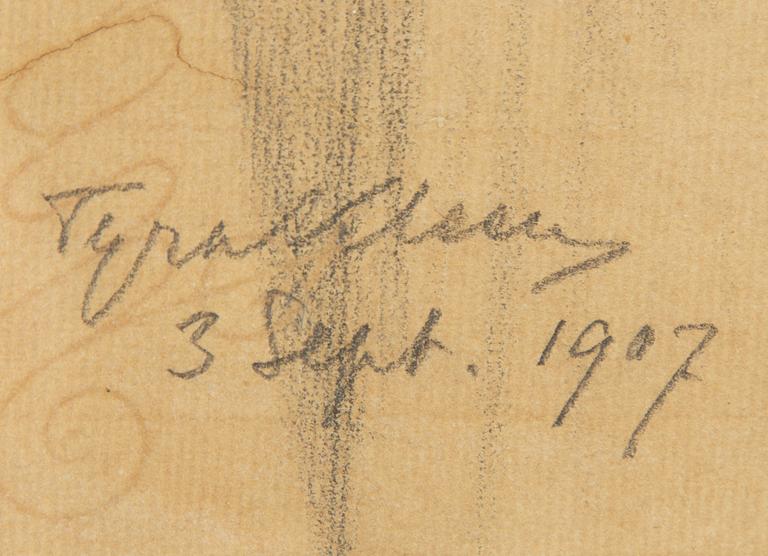 Tyra Kleen
3 Sept. 1907